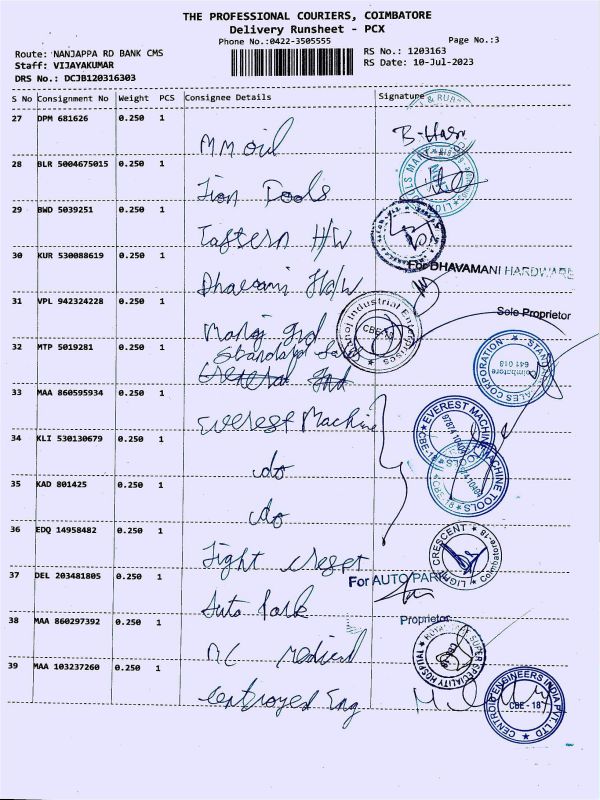 THE PROFESSIONAL COURIERS, COIMBATORE
Delivery Runsheet - PCX
Phone No.:0422-3505555
Page No.:3
Route: NANJAPPA RD BANK CMS
RS No.: 1203163
Staff: VIJAYAKUMAR
RS Date: 10-Jul-2023
DRS No.: DCJB120316303
S No Consignment No Weight PCS Consignee Details Signature
27 DPM 681626 0.250 1
MM oil
28 BLR 5004675015 0.250 1
Tools
29 BWD 5039251 0.250 1
H/W
30 KUR 530088619 0.250 1
For DHAVAMANI HARDWARE
31 VPL 942324228 0.250 1
Manoj Ind
Manoj Industrial Enterprises
CBE-18
Sole Proprietor
32 MTP 5019281 0.250 1
Standard Sales
STANDARD SALES CORPORATION
Coimbatore
641 018
33 MAA 860595934 0.250 1
Everest Machine
EVEREST MACHINE TOOLS
34 KLI 530130679 0.250 1
do
35 KAD 801425 0.250 1
do
36 EDQ 14958482 0.250 1
Light
CRESCENT LIGHT
Coimbatore-18
37 DEL 203481805 0.250 1
Auto Park
For AUTO PARK
Proprietor
38 MAA 860297392 0.250 1
Medical
SUPER SPECIALITY HOSPITAL
39 MAA 103237260 0.250 1
Eng
CENTROID ENGINEERS INDIA PVT. LTD
CBE - 18